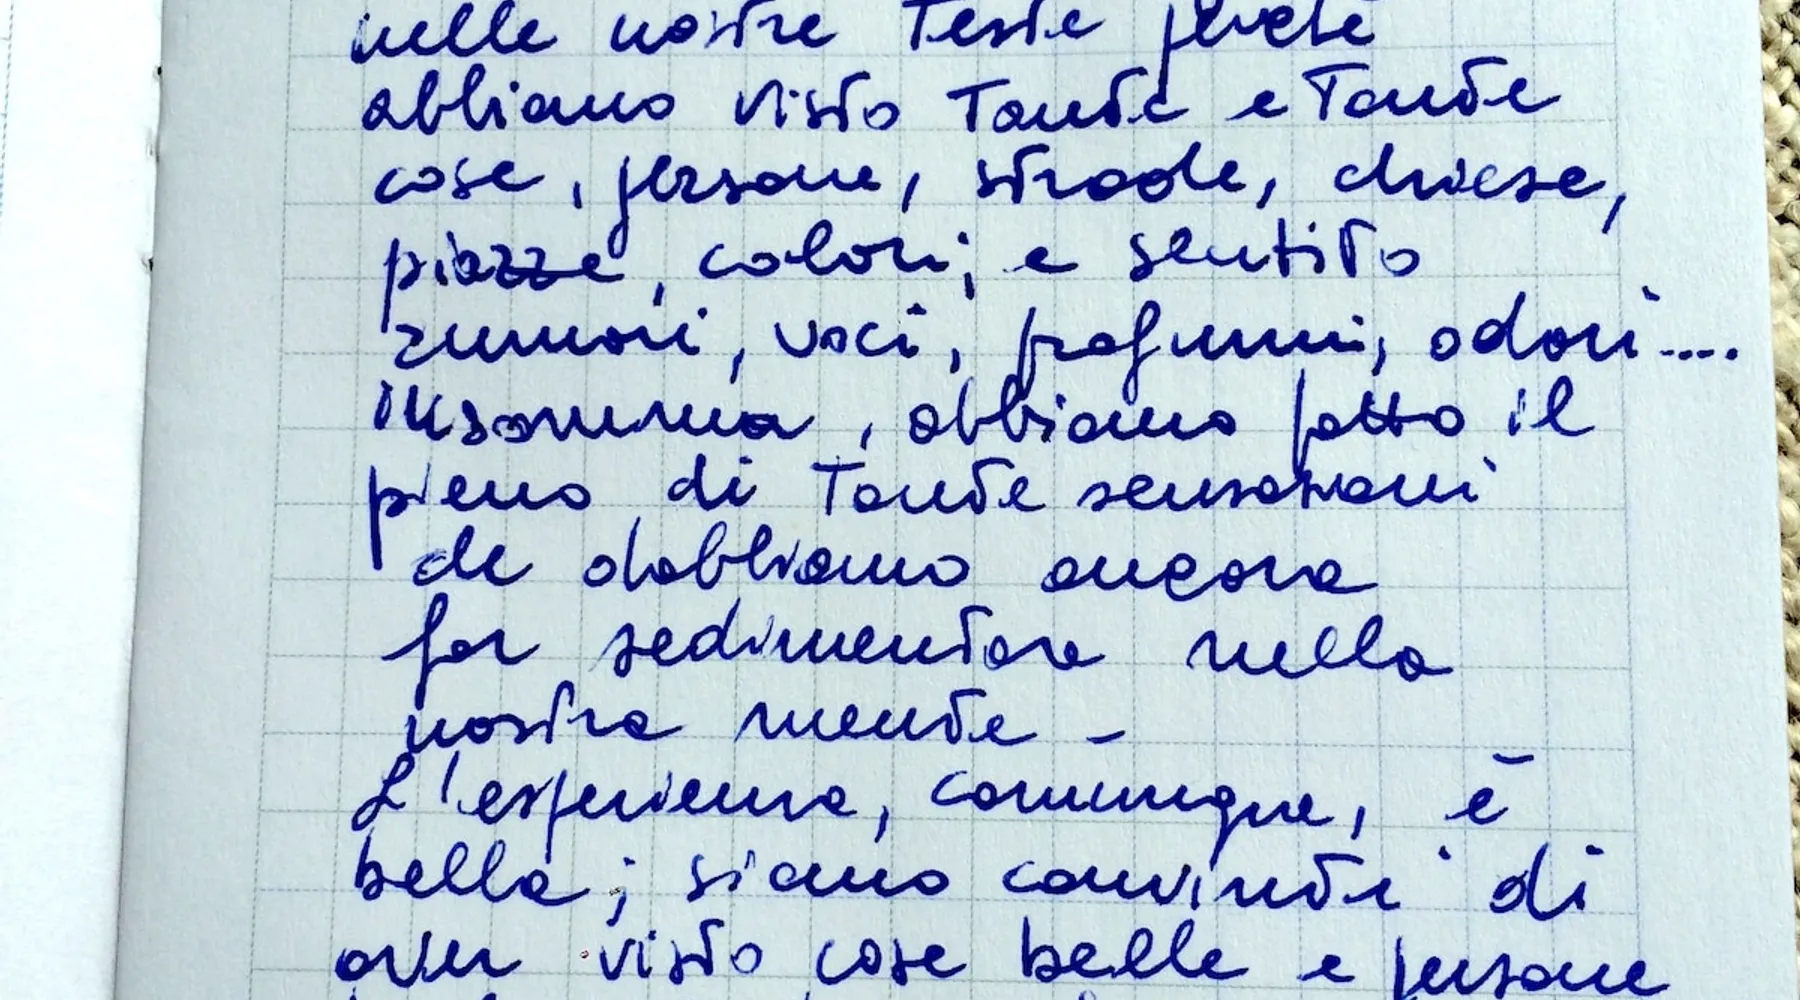 nelle nostre teste perché
abbiamo visto tante e tante
cose, persone, strade, chiese,
piazze, colori; e sentito
rumori, voci, profumi, odori....
insomma, abbiamo fatto il
pieno di tante sensazioni
che dobbiamo ancora
far sedimentare nella
nostra mente -
L'esperienza, comunque, è
bella; siamo convinti di
aver visto cose belle e persone